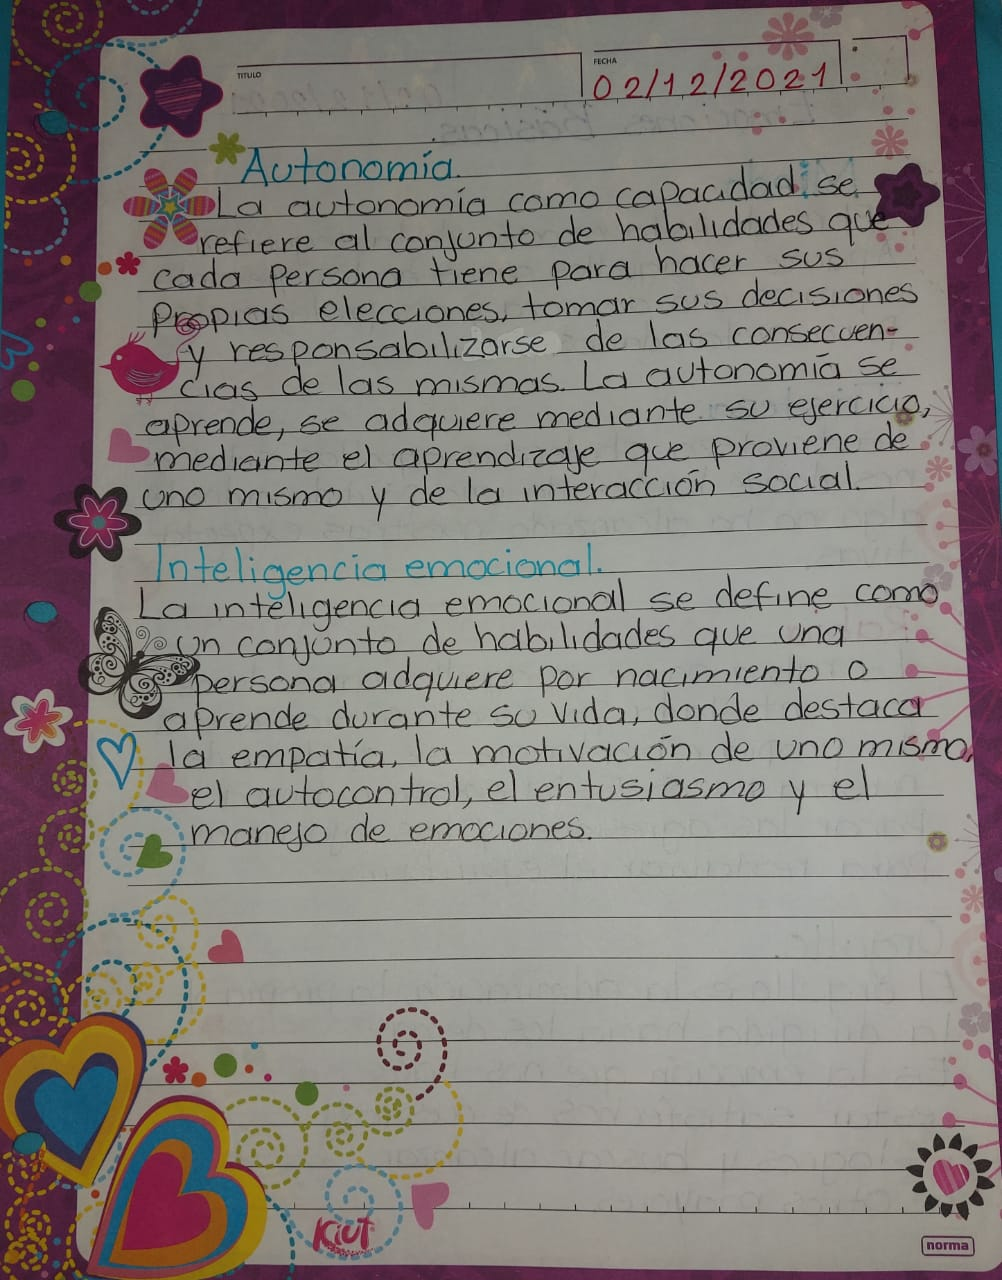 TITULO
FECHA
02/12/2021
Autonomía.
La autonomía como capacidad se
refiere al conjunto de habilidades que
cada persona tiene para hacer sus
propias elecciones, tomar sus decisiones
y responsabilizarse de las consecuen-
cias de las mismas. La autonomía se
aprende, se adquiere mediante su ejercicio,
mediante el aprendizaje que proviene de
uno mismo y de la interacción social.
Inteligencia emocional.
La inteligencia emocional se define como
un conjunto de habilidades que una
persona adquiere por nacimiento o
aprende durante su vida, donde destaca
la empatía, la motivación de uno mismo,
el autocontrol, el entusiasmo y el
manejo de emociones.
Kiut
norma